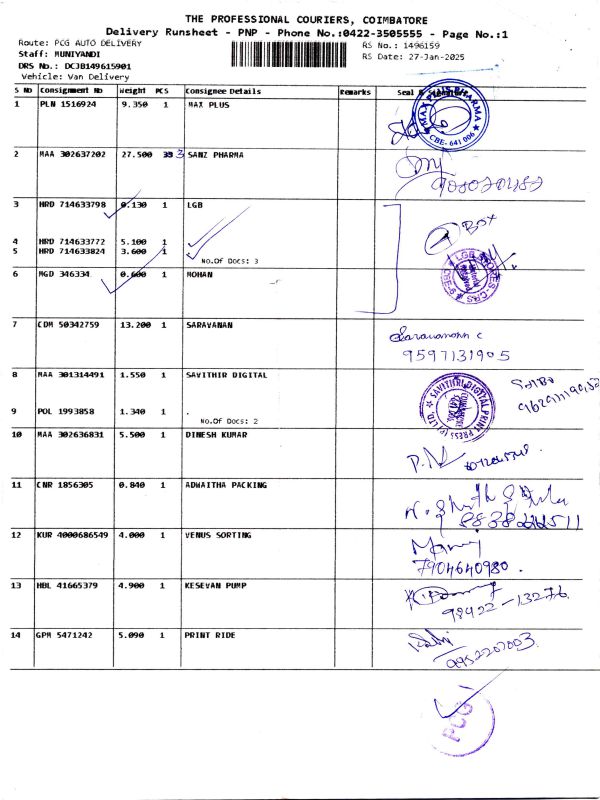 THE PROFESSIONAL COURIERS, COIMBATORE
Delivery Runsheet - PNP - Phone No.:0422-3505555 - Page No.:1
Route: PCG AUTO DELIVERY
RS No.: 1496159
Staff: MUNIYANDI
RS Date: 27-Jan-2025
DRS No.: DCJB149615901
Vehicle: Van Delivery
S No Consignment No Weight PCS Consignee Details Remarks Seal &
1 PLN 1516924 9.350 1 MAX PLUS
MAX PLUS PHARMA
CBE- 641 006
2 MAA 302637202 27.500 3 SANZ PHARMA
3 HRD 714633798 0.130 1 LGB
BOX
4 HRD 714633772 5.100 1
5 HRD 714633824 3.600 1
No.Of Docs: 3
6 MGD 346334 0.600 1 MOHAN
7 CDM 50342759 13.200 1 SARAVANAN
Saravanan c
9597131905
8 MAA 301314491 1.550 1 SAVITHIR DIGITAL
SAVITHRI DIGITAL PRINT PRESS (P) LTD.
9 POL 1993858 1.340 1 .
No.Of Docs: 2
10 MAA 302636831 5.500 1 DINESH KUMAR
11 CNR 1856305 0.840 1 ADWAITHA PACKING
12 KUR 4000686549 4.000 1 VENUS SORTING
7904640980.
13 HBL 41665379 4.900 1 KESEVAN PUMP
98422-13276
14 GPM 5471242 5.090 1 PRINT RIDE
9952207003
PCG